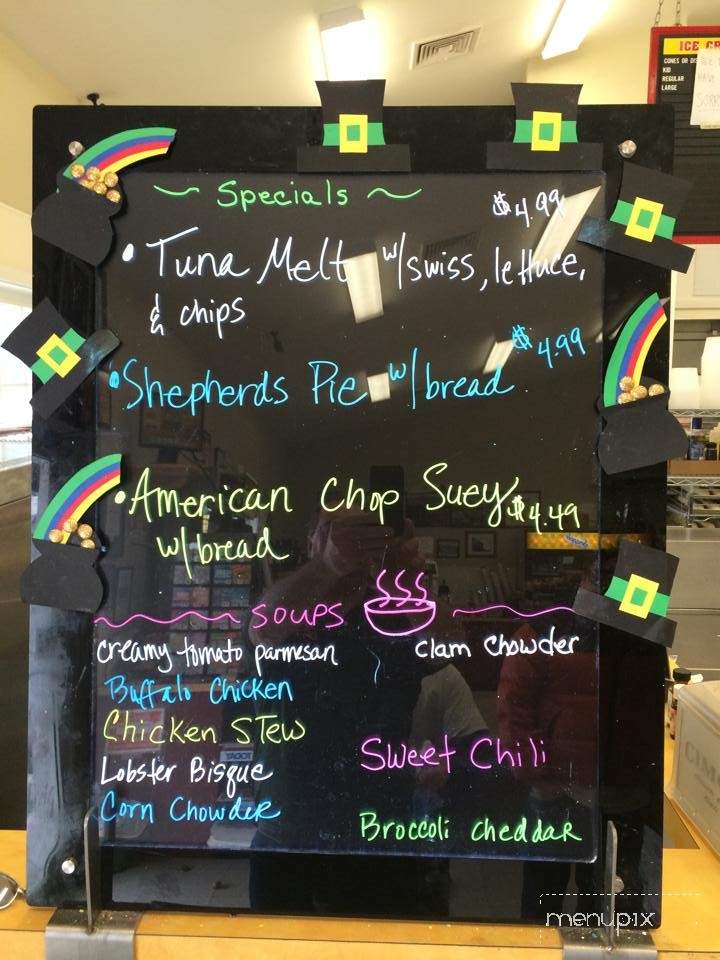 ICE CR
CONES OR DI
KID
REGULAR
LARGE
SORR
~ Specials ~
$4.99
• Tuna Melt w/swiss, lettuce,
& chips
• Shepherds Pie w/bread $4.99
• American Chop Suey $4.49
w/bread
SOUPS
creamy tomato parmesan
clam chowder
Buffalo Chicken
Chicken Stew
Sweet Chili
Lobster Bisque
Corn Chowder
Broccoli cheddar
menupix